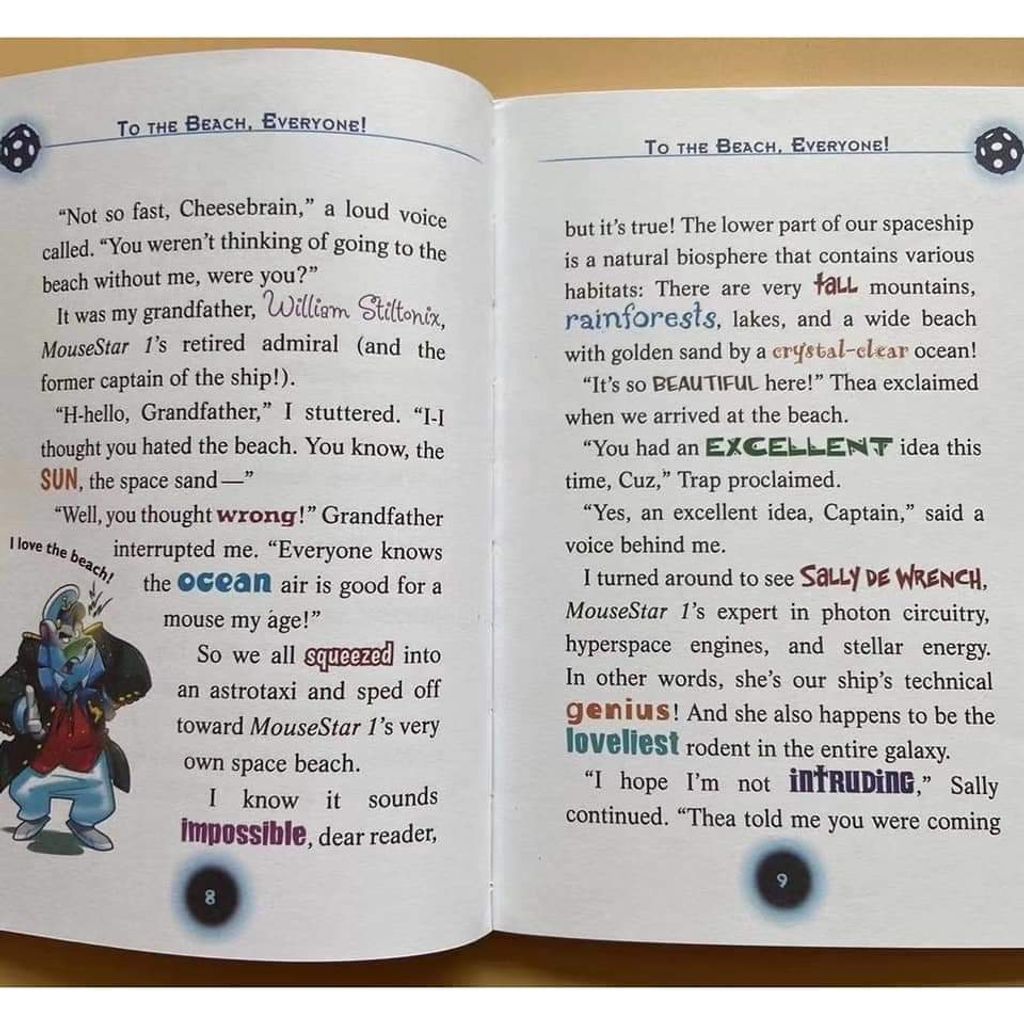 TO THE BEACH, EVERYONE!
“Not so fast, Cheesebrain,” a loud voice
called. “You weren’t thinking of going to the
beach without me, were you?”
It was my grandfather, William Stiltonix,
MouseStar 1’s retired admiral (and the
former captain of the ship!).
“H-hello, Grandfather,” I stuttered. “I-I
thought you hated the beach. You know, the
SUN, the space sand—”
“Well, you thought wrong!” Grandfather
I love the beach!
interrupted me. “Everyone knows
the ocean air is good for a
mouse my age!”
So we all squeezed into
an astrotaxi and sped off
toward MouseStar 1’s very
own space beach.
I know it sounds
impossible, dear reader,
8
TO THE BEACH, EVERYONE!
but it’s true! The lower part of our spaceship
is a natural biosphere that contains various
habitats: There are very tall mountains,
rainforests, lakes, and a wide beach
with golden sand by a crystal-clear ocean!
“It’s so BEAUTIFUL here!” Thea exclaimed
when we arrived at the beach.
“You had an EXCELLENT idea this
time, Cuz,” Trap proclaimed.
“Yes, an excellent idea, Captain,” said a
voice behind me.
I turned around to see SALLY DE WRENCH,
MouseStar 1’s expert in photon circuitry,
hyperspace engines, and stellar energy.
In other words, she’s our ship’s technical
genius! And she also happens to be the
loveliest rodent in the entire galaxy.
“I hope I’m not INTRUDING,” Sally
continued. “Thea told me you were coming
9